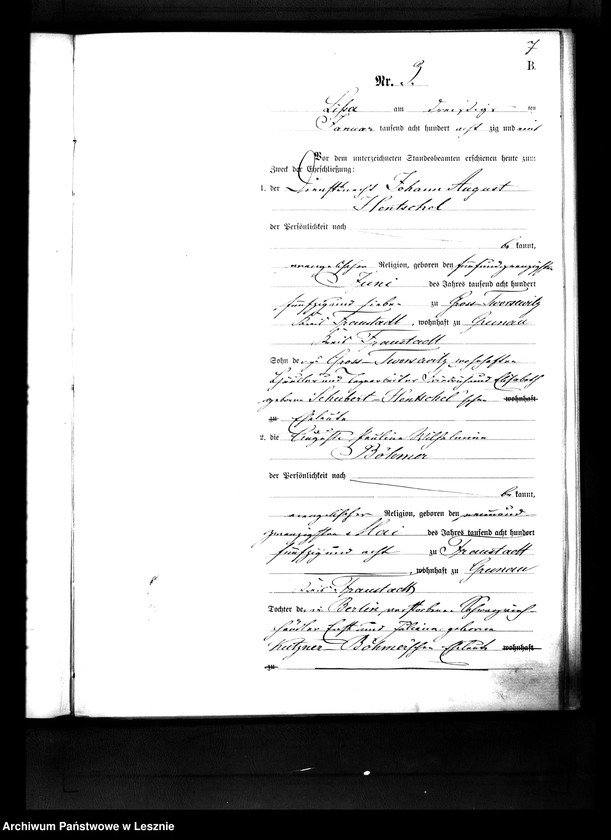 7
B.
Nr. 3.
Lissa am dreißigsten
Januar tausend acht hundert achtzig und eins
Vor dem unterzeichneten Standesbeamten erschienen heute zum
Zweck der Eheschließung:
1. der Dienstknecht Johann August
Hentschel
der Persönlichkeit nach
be kannt,
evangelischer Religion, geboren den fünfundzwanzigsten
Juni des Jahres tausend acht hundert
fünfzig und sieben zu Gross-Tworsewitz
Kreis Fraustadt, wohnhaft zu Grunau
Kreis Fraustadt
Sohn der zu Gross-Tworsewitz wohnhaften
Häusler und Tagearbeiter und Elisabeth
geborene Schubert-Hentschel'schen wohnhaft
zu Eheleute
2. die Auguste Pauline Wilhelmine
Böhmer
der Persönlichkeit nach
be kannt,
evangelischer Religion, geboren den neunund
zwanzigsten Mai des Jahres tausend acht hundert
fünfzig und acht zu Fraustadt
, wohnhaft zu Grunau
Kreis Fraustadt
Tochter der in Berlin verstorbenen
händler und Juliane geborene
Böhmer'schen Eheleute wohnhaft
zu
Archiwum Państwowe w Lesznie